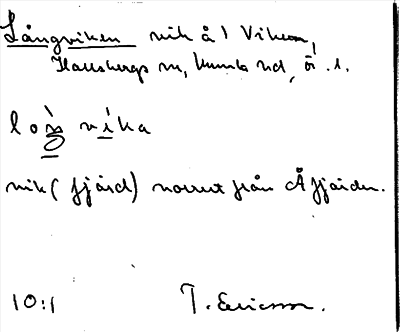 Långviken vik å 1 Viken,
Hallsbergs sn, Kumla hd, Ör. l.
loŋ vika
vik (fjärd) norrut från Åfjärden.
10:1 T. Ericsson.